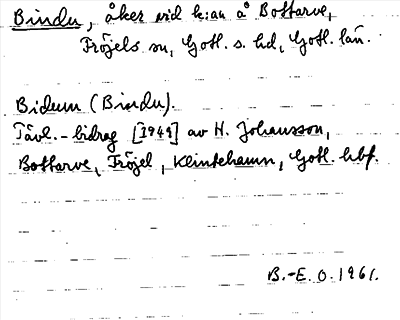 Bindu, åker vid k:an å Bottarve,
Fröjels sn, Gotl. s. hd, Gotl. län.
Bidum (Bindu).
Tävl.-bidrag [1949] av H. Johansson,
Bottarve, Fröjel, Klintehamn, Gotl. hbf.
B.-E. O. 1961.